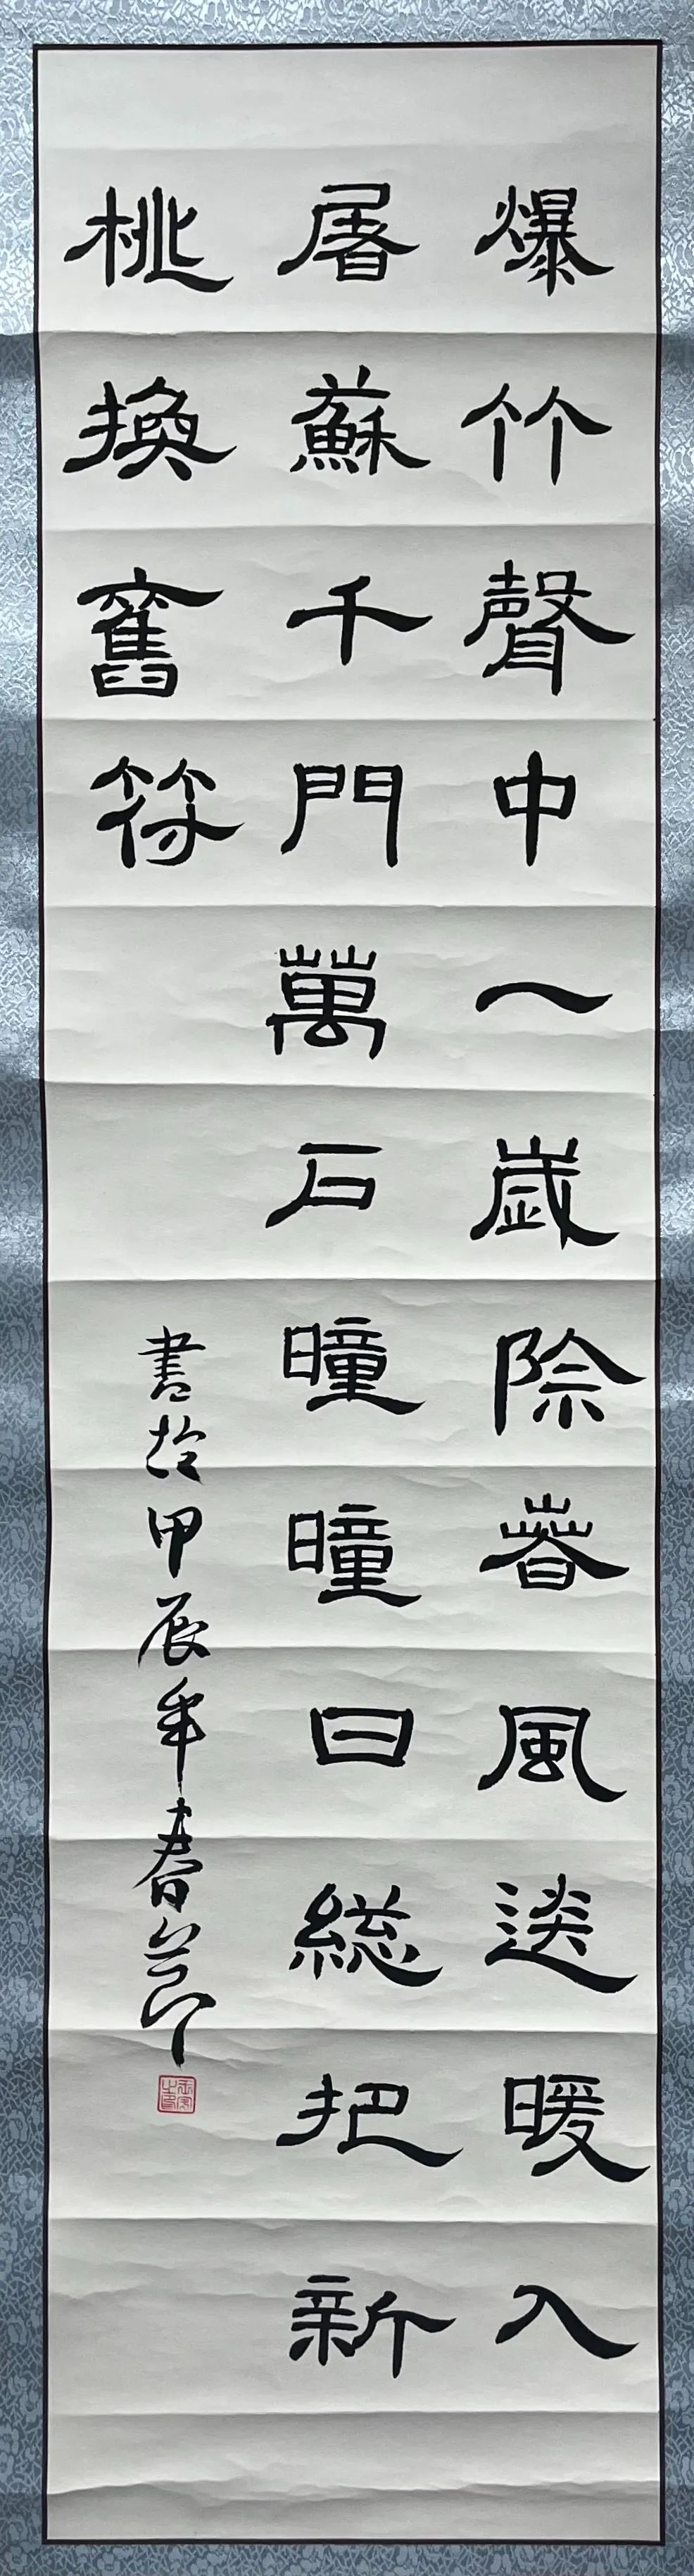 爆竹聲中一歲除春風送暖入
屠蘇千門萬石曈曈日総把新
桃換舊符
書於甲辰年春節